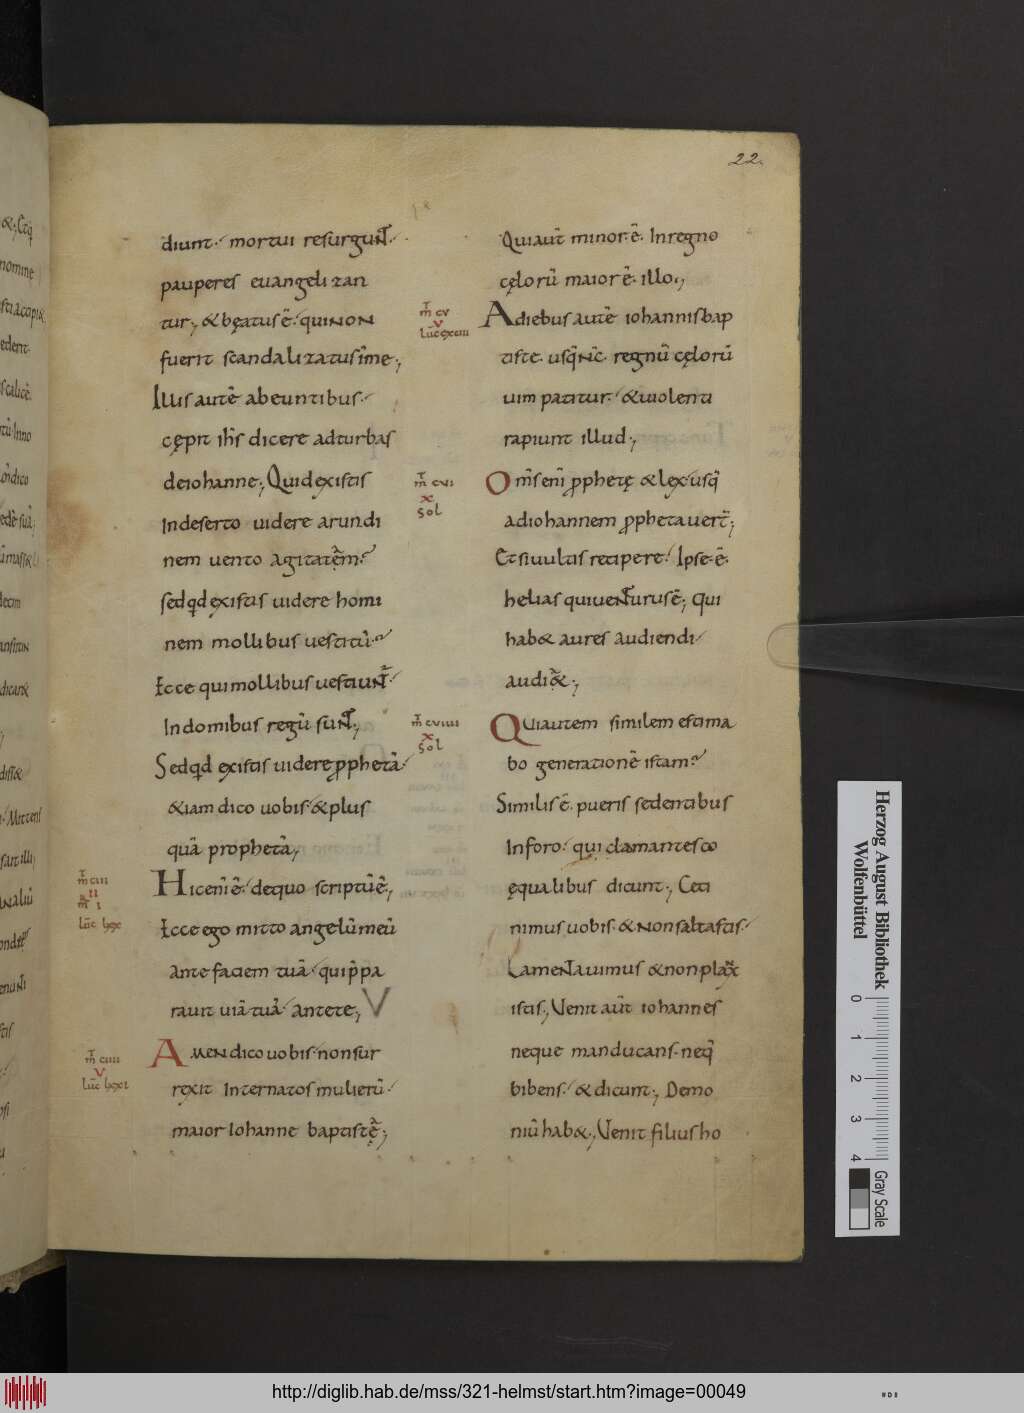 22.
diunt· mortui resurguNT·
pauperes euangelizan
tur; &bęatus ē· quiNON
fuerit scandalizatus īme;
Illis autē abeuntibus·
cępit ihs̄ dicere adturbas
deiohanne; Quidexistis
Indeserto uidere arundi
nem uento agitatem?
sedqd existis uidere homi
nem mollibus uestitū?
Ecce quimollibus uestiuNT·
Indomibus regū suNT;
Sedqd existis uidere pphetā·
&iam dico uobis· &plus
quā prophetā;
Hicenī ē· dequo scriptū ē;
Ecce ego mitto angelū meū
ante faciem tuā· quip̄pa
rauit uiā tuā· antete; V
AMEN dico uobis· nonsur
rexit Internatos mulierū·
maior Iohanne baptistę;
m̄ ciii
ii
m̄ i
luc̄ lxx
m̄ ciiii
V
luc̄ lxxi
Quiaut̄ minor· ē· Inregno
cęlorū maior ē· illo;
Adiebus autē iohannis bap
tiste· usq̄ Nc̄· regnū cęlorū
uim patitur· &uiolenti
rapiunt illud;
Om̄s enī pphetę &lex usq̄
adiohannem pphetauert̄;
Etsiuultis recipere· Ipse· ē·
helias quiueNTurus ē; Qui
hab& aures audiendi
audi&;
Quiautem similem estima
bo generationē istam?
Similis ē· pueris sedentibus
Inforo· qui clamantes co
ęqualibus dicunt; Ceci
nimus uobis· &Nonsaltastis·
LameNTauimus &nonplanx
istis; Venit aut̄ iohannes
neque manducans· neq̄
bibens· &dicunt; Demo
niū hab&; Venit filius ho
m̄ cv
V
luc̄ cxciii
m̄ cvi
x
sol
m̄ cviiii
x
sol
Herzog August Bibliothek
Wolfenbüttel
0 1 2 3 4
Gray Scale
http://diglib.hab.de/mss/321-helmst/start.htm?image=00049